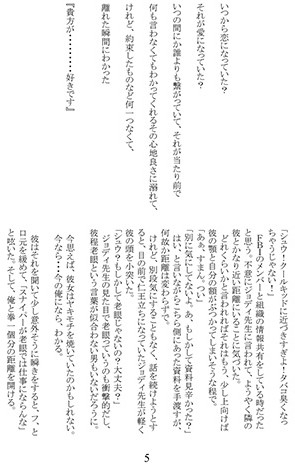 いつから恋になっていた？
それが愛になっていた？
いつの間にか誰よりも繋がっていて、それが当たり前で
何も言わなくてもわかってくれるその心地良さに溺れて、
けれど、約束したものなど何一つなくて、
離れた瞬間にわかった
『貴方が・・・・・・・・好きです』
「シュウ！クールキッドに近づきすぎよ！タバコ臭くなっ
ちゃうじゃない！」
FBIのメンバーと組織の情報共有をしている時だった
と思う。不意にジョディ先生に言われて、ようやく隣の
彼とかなり近い距離にいることに気づいた。
どれくらいかと言われればそれはもう、少し上向けば
彼の顎と自分の額がぶつかってしまいそうな程で。
「あぁ、すまん、つい」
「別に気にしてないよ。あ、もしかして資料見辛かった？」
はい、と言いながらこちら側にあった資料を手渡すが、
何故か距離は変わらずで。
けれど、別段気にすることもなく、話を続けようとす
ると、目の前に仁王立ちになっていたジョディ先生が軽く
彼の頭を小突いた。
「シュウ？もしかして老眼じゃないの？大丈夫？」
ジョディ先生の見た目で老眼っていうのも衝撃的だし、
彼程老眼という言葉が似合わない男もいないだろうに。
今思えば、彼女はヤキモチを焼いていたのかもしれない。
今なら・・・今の俺になら、わかる。
彼はそれを聞いて少し意外そうに瞬きをすると、ふっ、と
口元を緩めて、「スナイパーが老眼では仕事にならんな」
と呟いた。そして、俺と半一個分の距離を開ける。
5